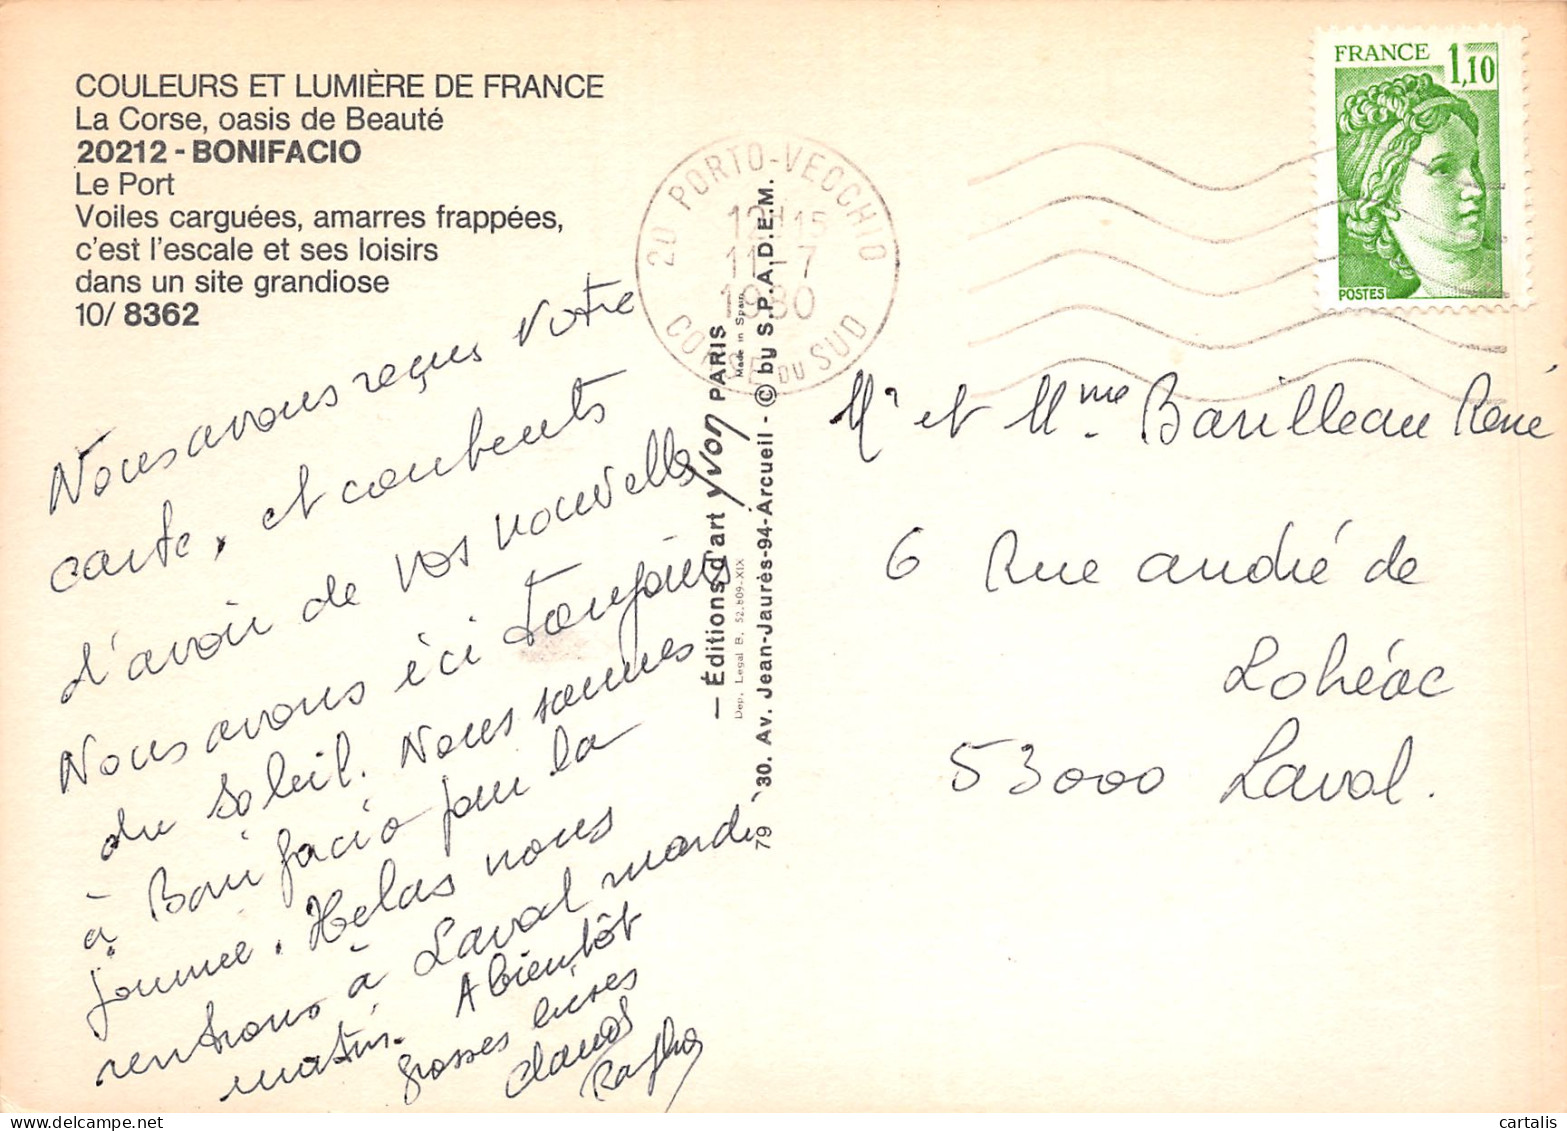 COULEURS ET LUMIÈRE DE FRANCE
La Corse, oasis de Beauté
20212 - BONIFACIO
Le Port
Voiles carguées, amarres frappées,
c'est l'escale et ses loisirs
dans un site grandiose
10/ 8362
Nous avons reçus votre
carte, et contents
d'avoir de vos nouvelles
Nous avons ici toujours
du soleil. Nous sommes
à Bonifacio pour la
journée. Helas nous
rentrons à Laval mardi
matin. A bientôt
grosses bises
20 PORTO-VECCHIO
12H15
11-7
1980
CORSE DU SUD
— Éditions d'art yvon PARIS
Made in Spain
Dep. Legal B. 52.809-XIX
79 30. Av. Jean-Jaurès-94-Arcueil - © by S.P.A.D.E.M.
FRANCE 1,10
POSTES
Mr et Mme Barilleau René
6 Rue andré de
Lohéac
53000 Laval.
cartalis